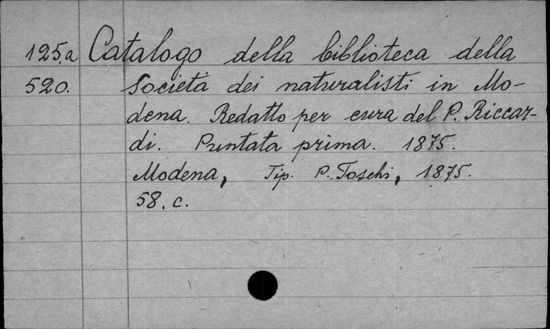 125.a Catalogo della biblioteca della
520. Società dei naturalisti in Mo-
dena. Redatto per cura del P. Riccar-
di. Puntata prima. 1875.
Modena, Tip. P. Toschi, 1875.
58. c.